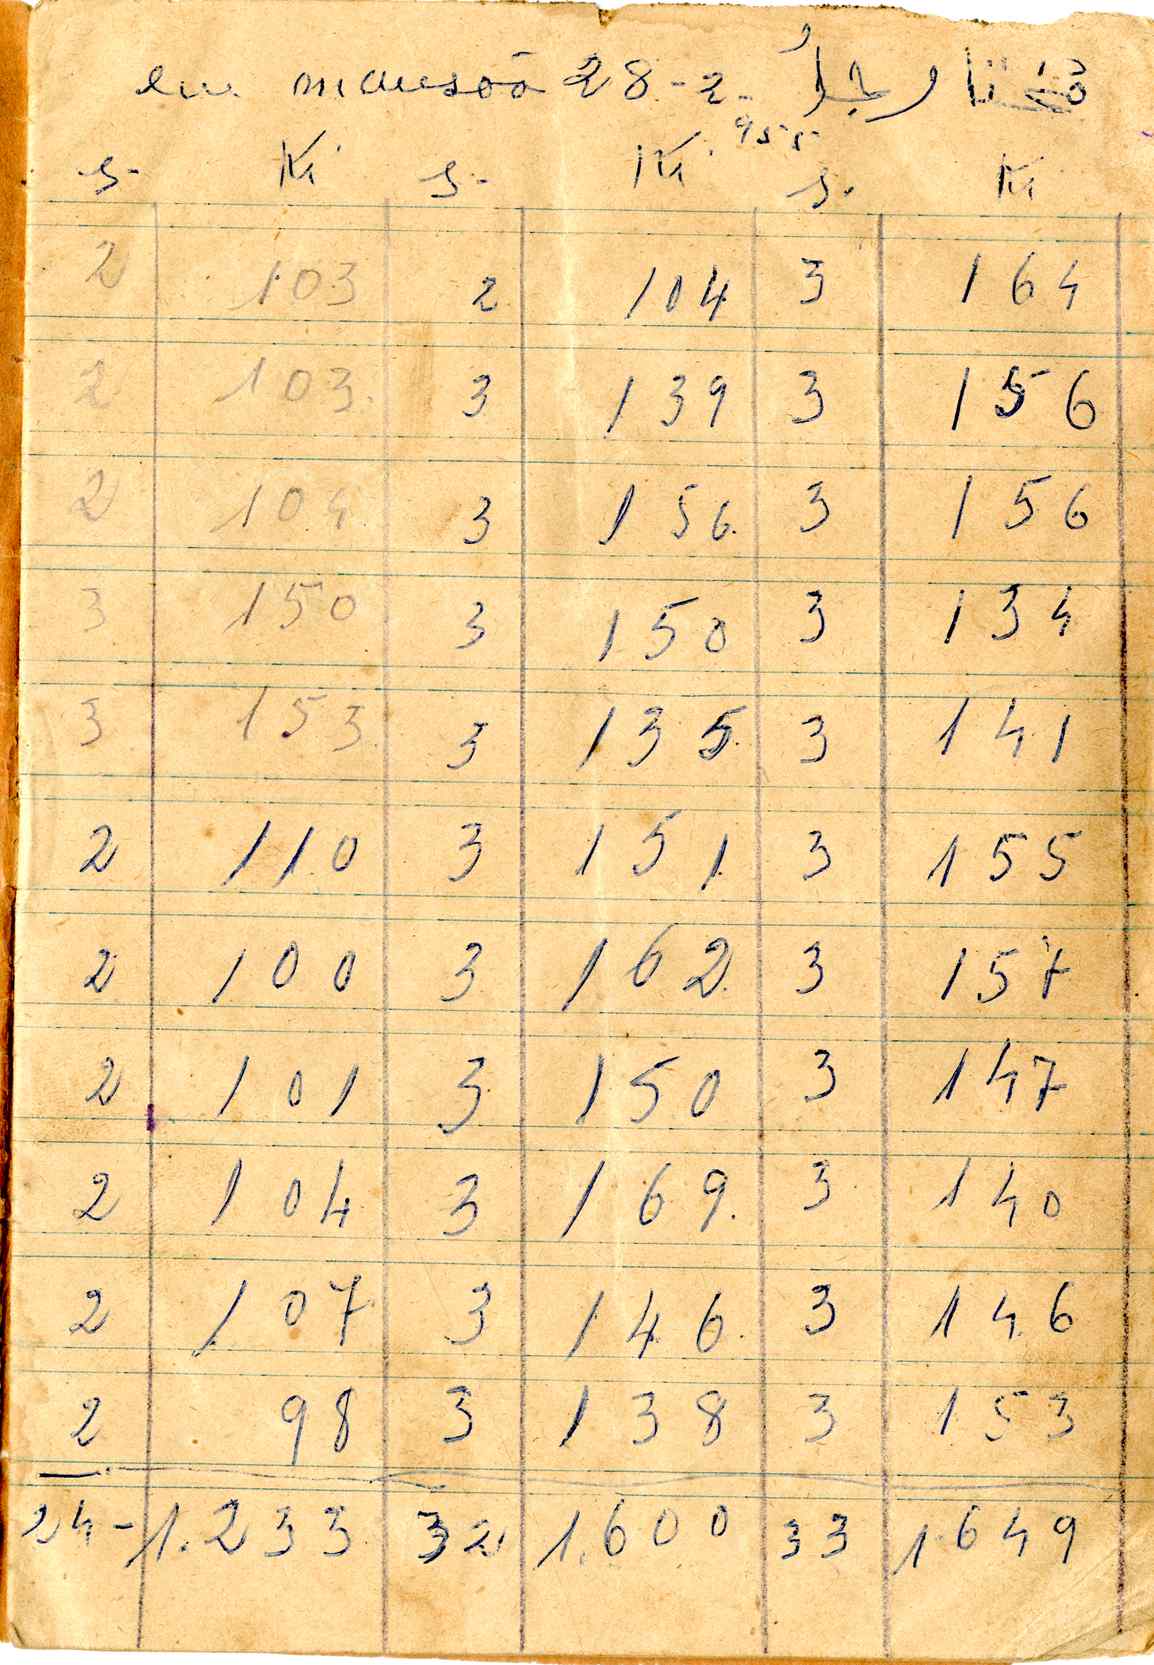 28-2-955
s. K. s. K. s. K.
2 103 2 104 3 164
2 103 3 139 3 156
2 104 3 156 3 156
3 150 3 150 3 134
3 153 3 135 3 141
2 110 3 151 3 155
2 100 3 162 3 157
2 101 3 150 3 147
2 104 3 169 3 140
2 107 3 146 3 146
2 98 3 138 3 153
24 - 1.233 32 1.600 33 1.649